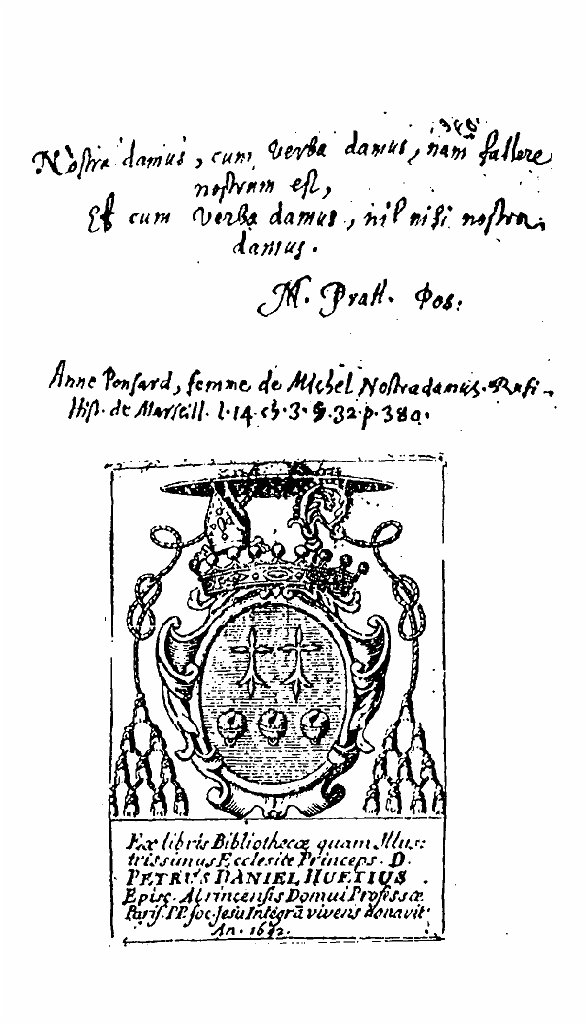 380.
Nostra damus, cum verba damus, nam fallere
nostrum est,
Et cum verba damus, nil nisi nostra
damus.
M. Pratt. Pos:
Anne Ponsard, femme de Michel Nostradamus. Rufi-
Hist. de Marseill. l. 14 ch. 3. §. 32. p. 380.
Ex libris Bibliothecæ quam Illus:
trissimus Ecclesiæ Princeps. D.
PETRUS DANIEL HUETIUS
Episc. Abrincensis Domui Professæ
Paris. PP. Soc. Jesu Integrā vivens donavit
An. 1692.